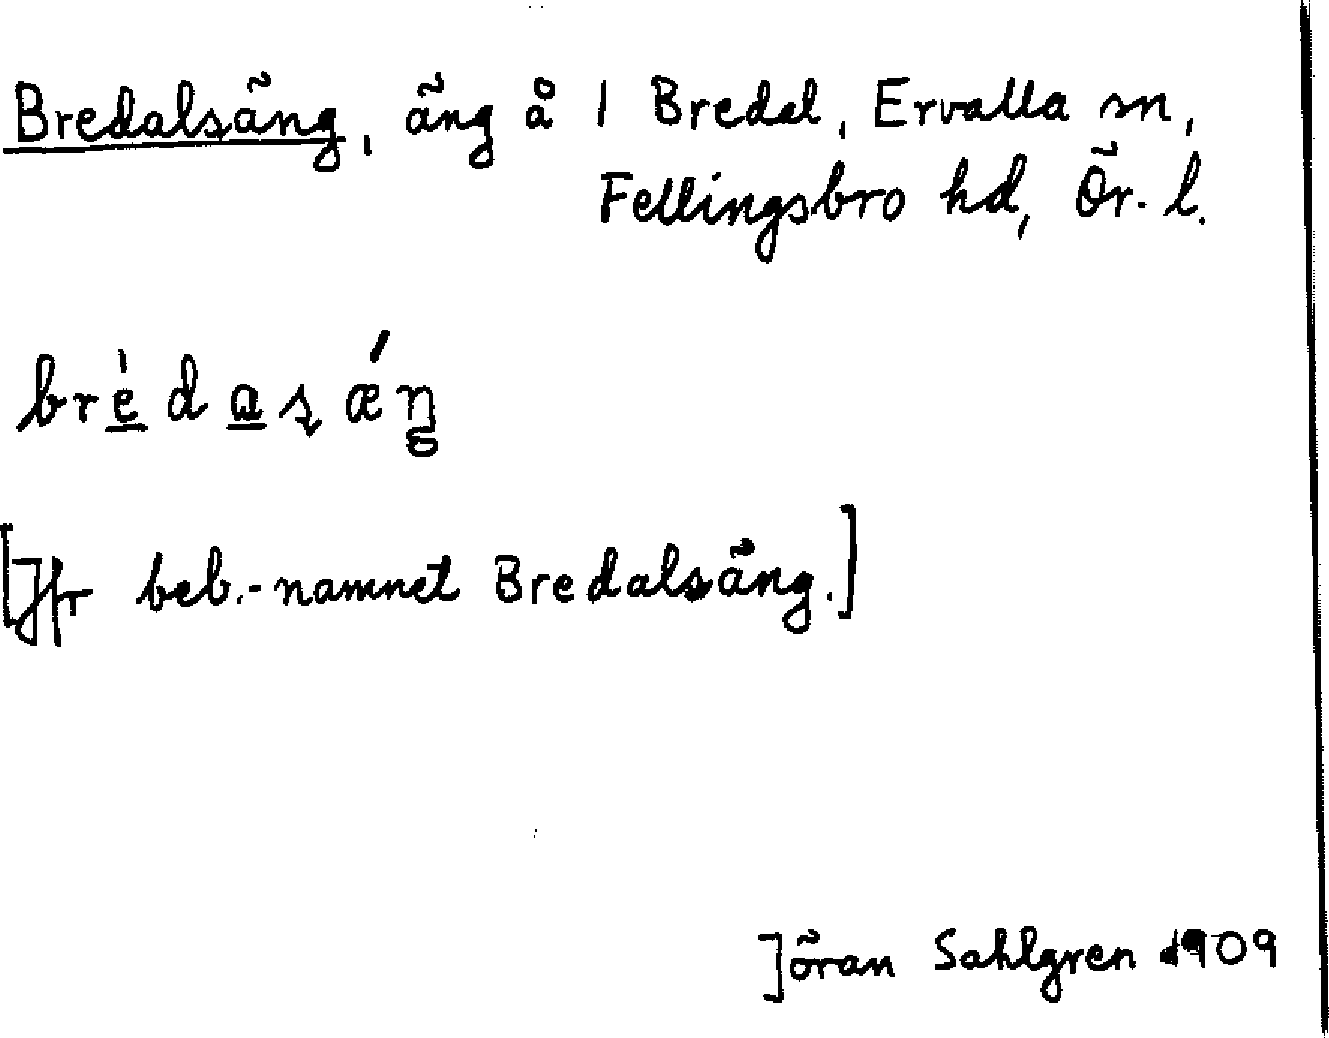 Bredalsäng, äng å 1 Bredal, Ervalla sn,
Fellingsbro hd, Ör. l.
brè̲da̲ʂǽŋ
[Jfr beb.-namnet Bredalsäng.]
Jöran Sahlgren 1909